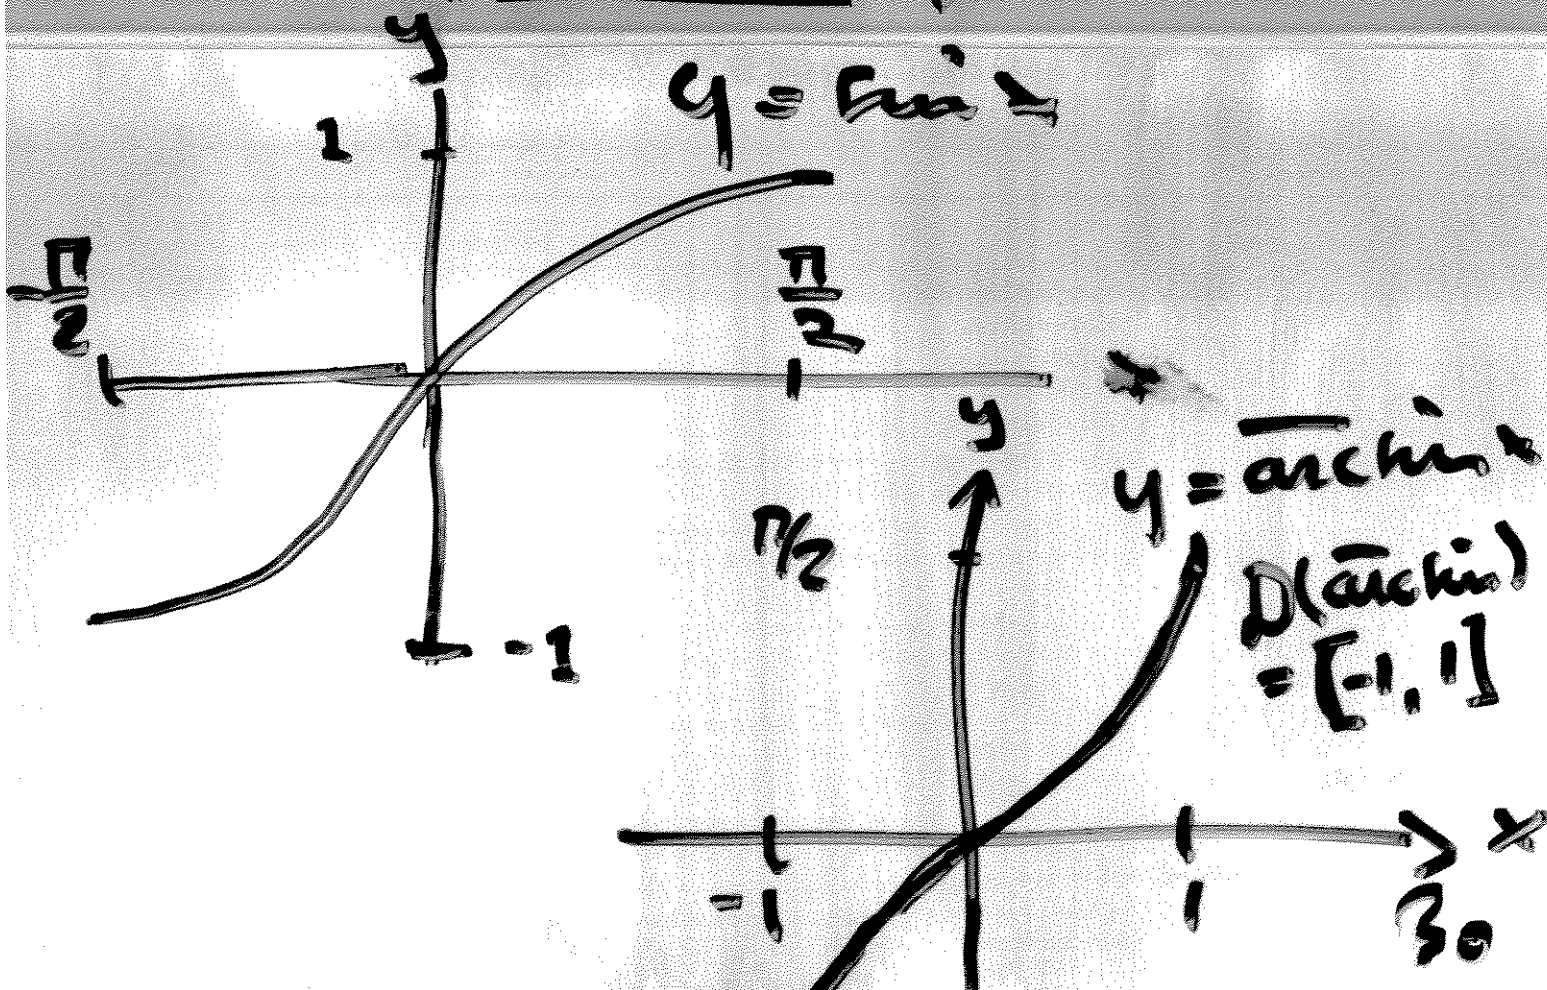 y
y = sin x
1
-π/2
π/2
x
-1
y
y = arcsin x
π/2
D(arcsin)
= [-1, 1]
x
-1
1
30